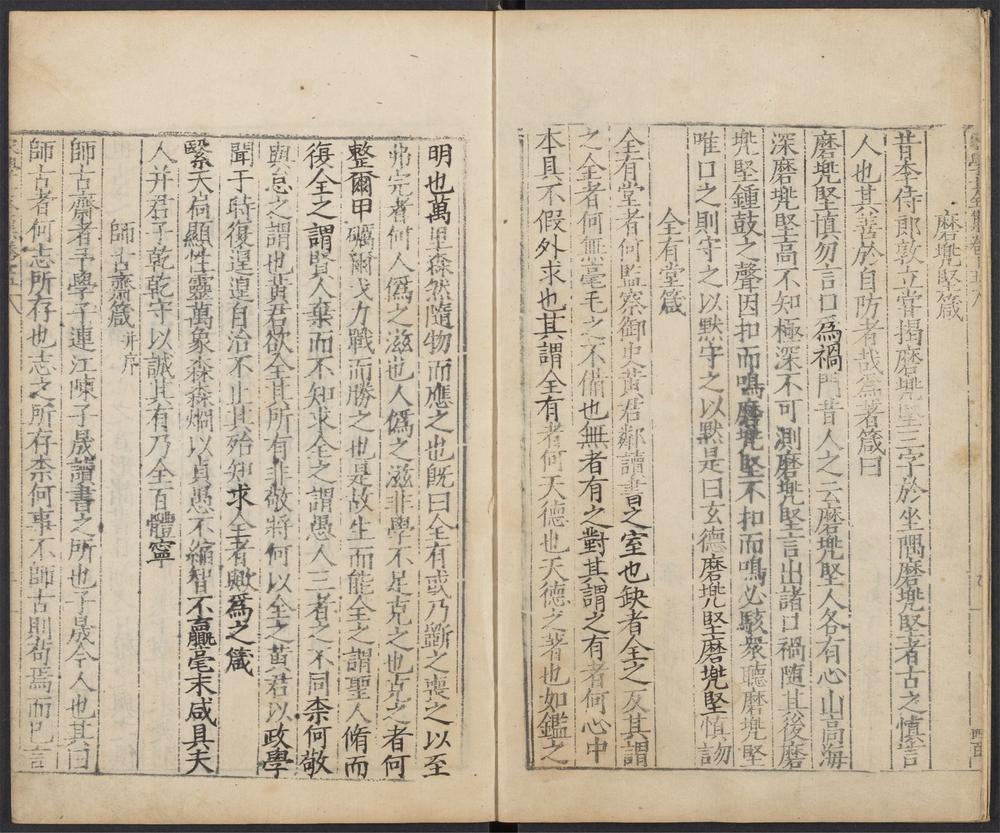 磨兠堅箴
昔李侍郎敦立甞揭磨兠堅三字於坐隅磨兠堅者古之慎言
人也其善於自防者哉為著箴曰
磨兠堅慎勿言口為禍門昔人之云磨兠堅人各有心山高海
深磨兠堅高不知極深不可測磨兠堅言出諸口禍隨其後磨
兠堅鍾鼓之聲因扣而鳴磨兠堅不扣而鳴必駭衆聽磨兠堅
唯口之則守之以默守之以默是曰玄德磨兠堅磨兠堅慎訒
全有堂箴
全有堂者何監察御史黃君鄰讀書之室也缺者全之反其謂
之全者何無毫毛之不備也無者有之對其謂之有者何心中
本具不假外求也其謂全有者何天德也天德之著也如鑑之
明也萬里森然隨物而應之也旣曰全有或乃斵之喪之以至
弗完者何人僞之滋也人僞之滋非學不足克之也克之者何
整爾甲礪爾戈力戰而勝之也是故生而能全之謂聖人脩而
復全之謂賢人棄而不知求全之謂愚人三者之不同柰何敬
與怠之謂也黃君欲全其所有非敬將何以全之黃君以政學
聞于時復遑遑自治不止其殆知求全者歟為之箴
緊天衷顯性靈萬象森森烱以貞愚不縮智不贏毫末咸具夫
人并君子乾乾守以誠其有乃全百體寧
師古齋箴并序
師古齋者予學子連江陳子晟讀書之所也子晟今人也其曰
師古者何志所存也志之所存柰何事不師古則苟焉而已言